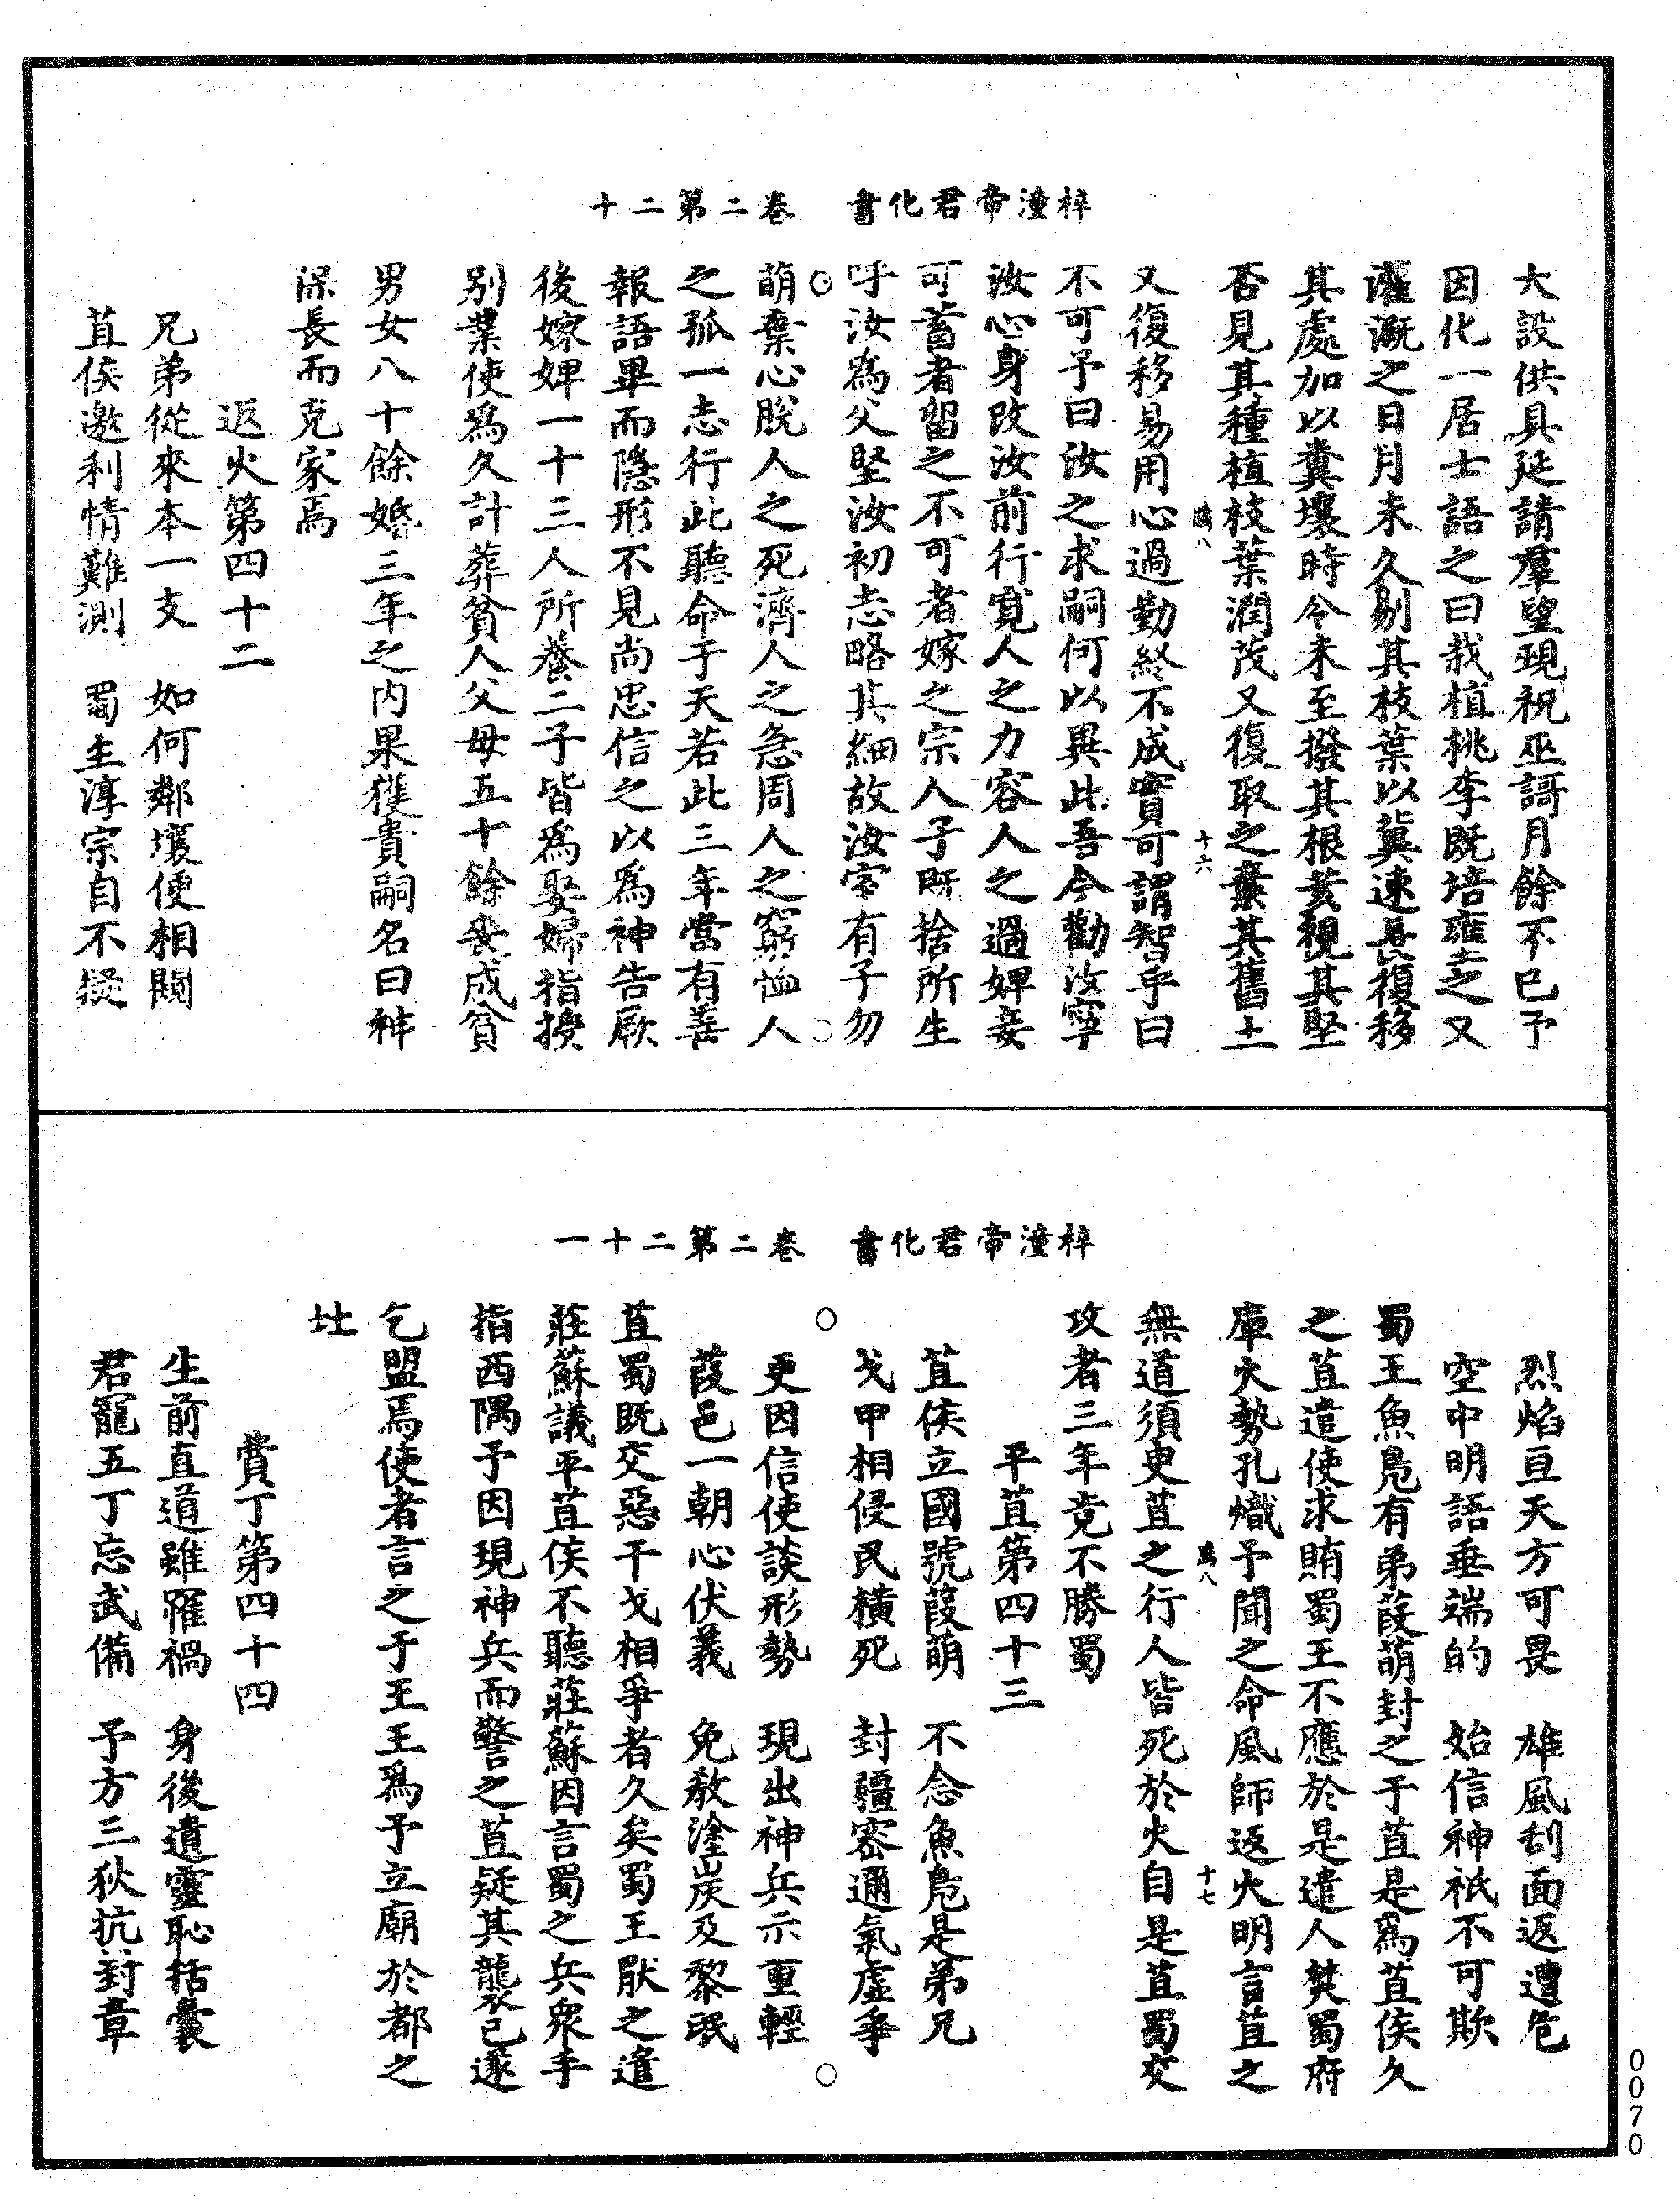 梓潼帝君化書　卷二第二十
大設供具延請羣望現祝巫謌月餘不已予
因化一居士語之曰我植桃李既培壅之又
灌溉之日月未久剔其枝葉以冀速長復移
其處加以糞壤時令未至撥其根荄視其堅
否見其種植枝葉潤茂又復取之棄其舊土
又復移易用心過勤終不成實可謂智乎曰
不可予曰汝之求嗣何以異此吾今勸汝寧
汝心身改汝前行寬人之力容人之過婢妾
可蓄者留之不可者嫁之宗人子既捨所生
呼汝為父堅汝初志略其細故汝室有子勿
萌棄心脫人之死濟人之急周人之窮恤人
之孤一志行此聽命于天若此三年當有善
報語畢而隱形不見尚忠信之以為神告厥
後嫁婢一十三人所養二子皆為娶婦指授
別業使為久計葬貧人父母五十餘喪成貧
男女八十餘婚三年之內果獲貴嗣名曰神
保長而克家焉
返火第四十二
兄弟從來本一支　如何鄰壤便相鬩
苴侯邀利情難測　蜀主淳宗自不疑
八
十六
梓潼帝君化書　卷二第二十一
烈焰亘天方可畏　雄風刮面返遭危
空中明語垂端的　始信神祇不可欺
蜀王魚鳧有弟葭萌封之于苴是為苴侯久
之苴遣使求賄蜀王不應於是遣人焚蜀府
庫火勢孔熾予聞之命風師返火明言苴之
無道須臾苴之行人皆死於火自是苴蜀交
攻者三年竟不勝蜀
平苴第四十三
苴侯立國號葭萌　不念魚鳧是弟兄
戈甲相侵民橫死　封疆密邇氣虛爭
更因信使談形勢　現出神兵示重輕
葭邑一朝心伏義　免教塗炭及黎氓
苴蜀既交惡干戈相爭者久矣蜀王厭之遣
莊蘇議平苴侯不聽莊蘇因言蜀之兵眾手
指西隅予因現神兵而警之苴疑其襲己遂
乞盟焉使者言之于王王為予立廟於都之
北
賞丁第四十四
生前直道雖罹禍　身後遺靈恥括囊
君寵五丁忘武備　予方三狄抗封章
八
十七
0070